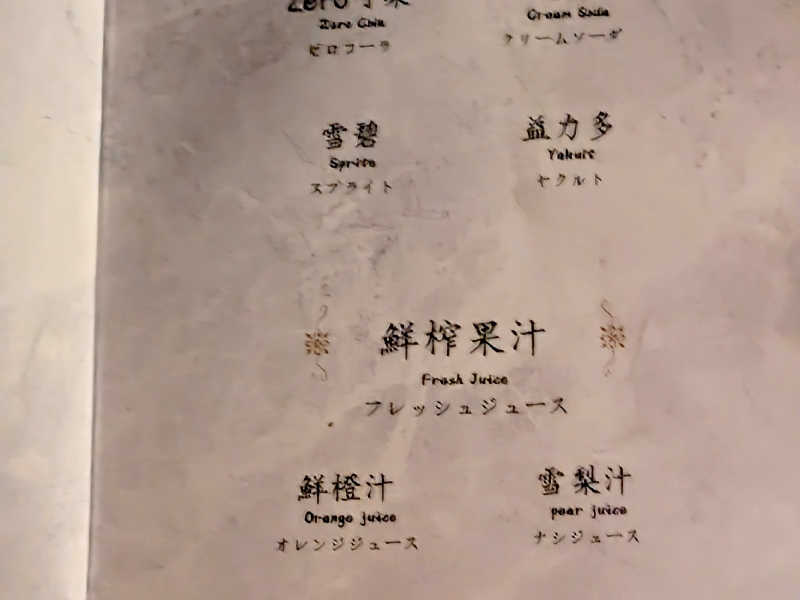 Zero
Zero Coke
ゼロコーラ
Cream Soda
クリームソーダ
雪碧
Sprite
スプライト
益力多
Yakult
ヤクルト
鮮榨果汁
Fresh Juice
フレッシュジュース
鮮橙汁
Orange juice
オレンジジュース
雪梨汁
pear juice
ナシジュース